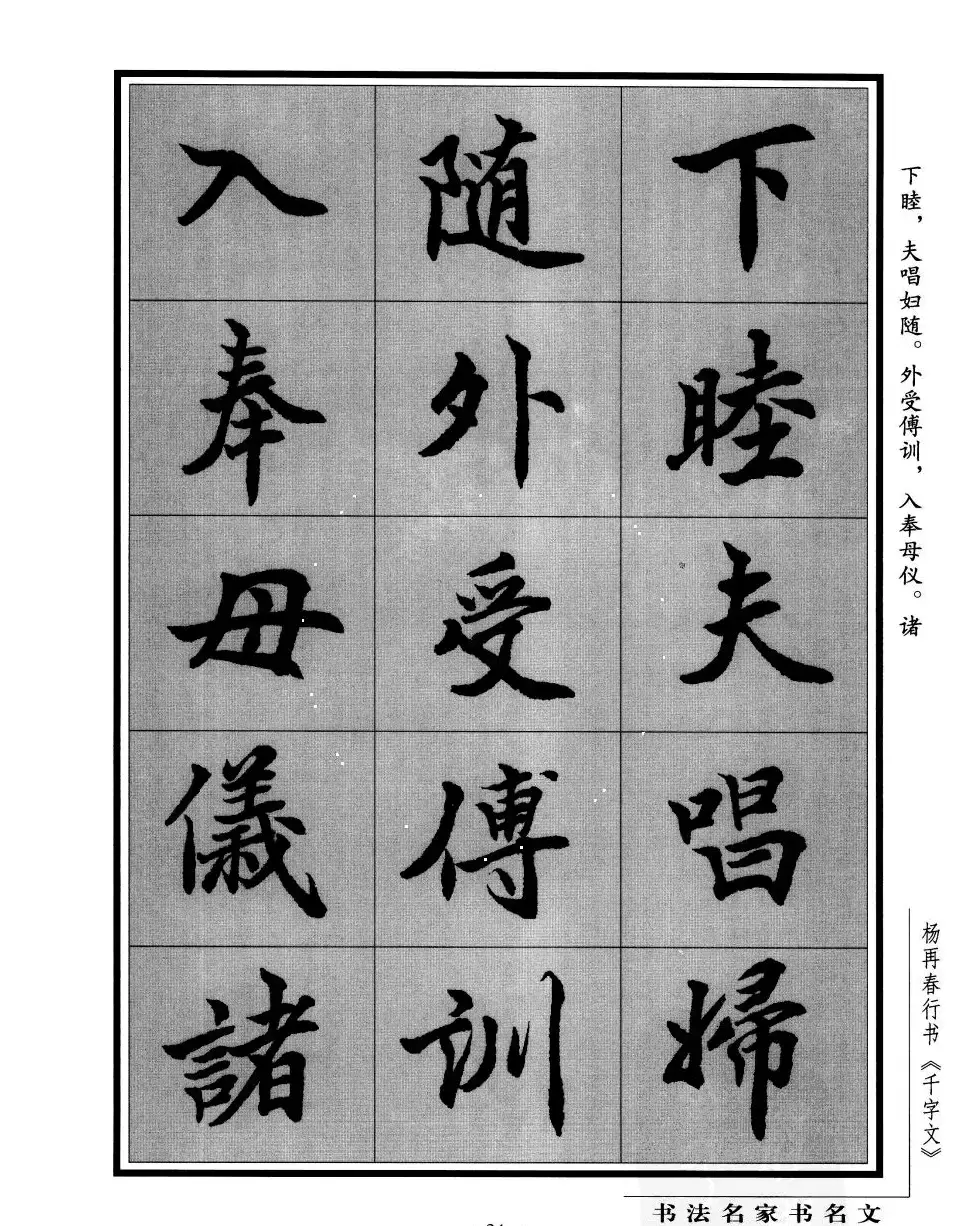 下睦夫唱婦
随外受傅訓
入奉母儀諸
下睦，夫唱妇随。外受傅训，入奉母仪。诸
杨再春行书《千字文》
书法名家书名文